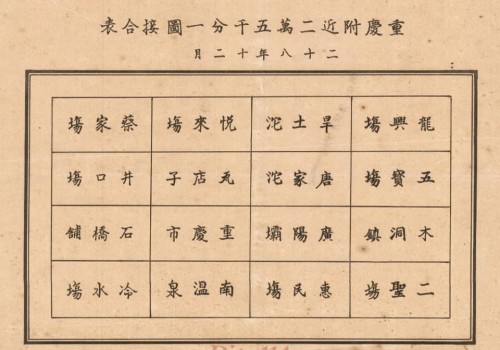 重慶附近二萬五千分一圖接合表
二十八年十二月
龍興塲 旱土沱 悅來塲 蔡家塲
五寶塲 唐家沱 瓦店子 井口塲
木洞鎮 廣陽壩 重慶市 石橋舖
二聖塲 惠民塲 南溫泉 冷水塲